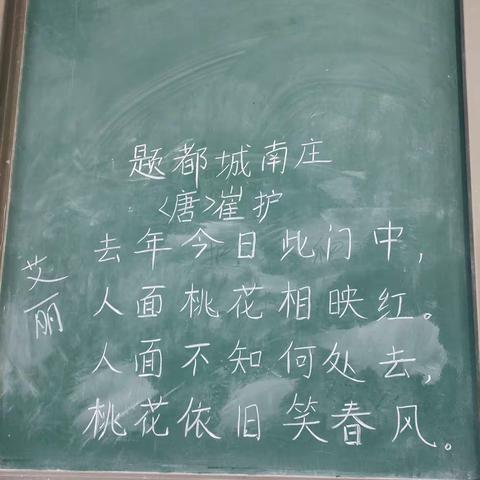 题都城南庄
<唐>崔护
去年今日此门中，
人面桃花相映红。
人面不知何处去，
桃花依旧笑春风。
艾丽